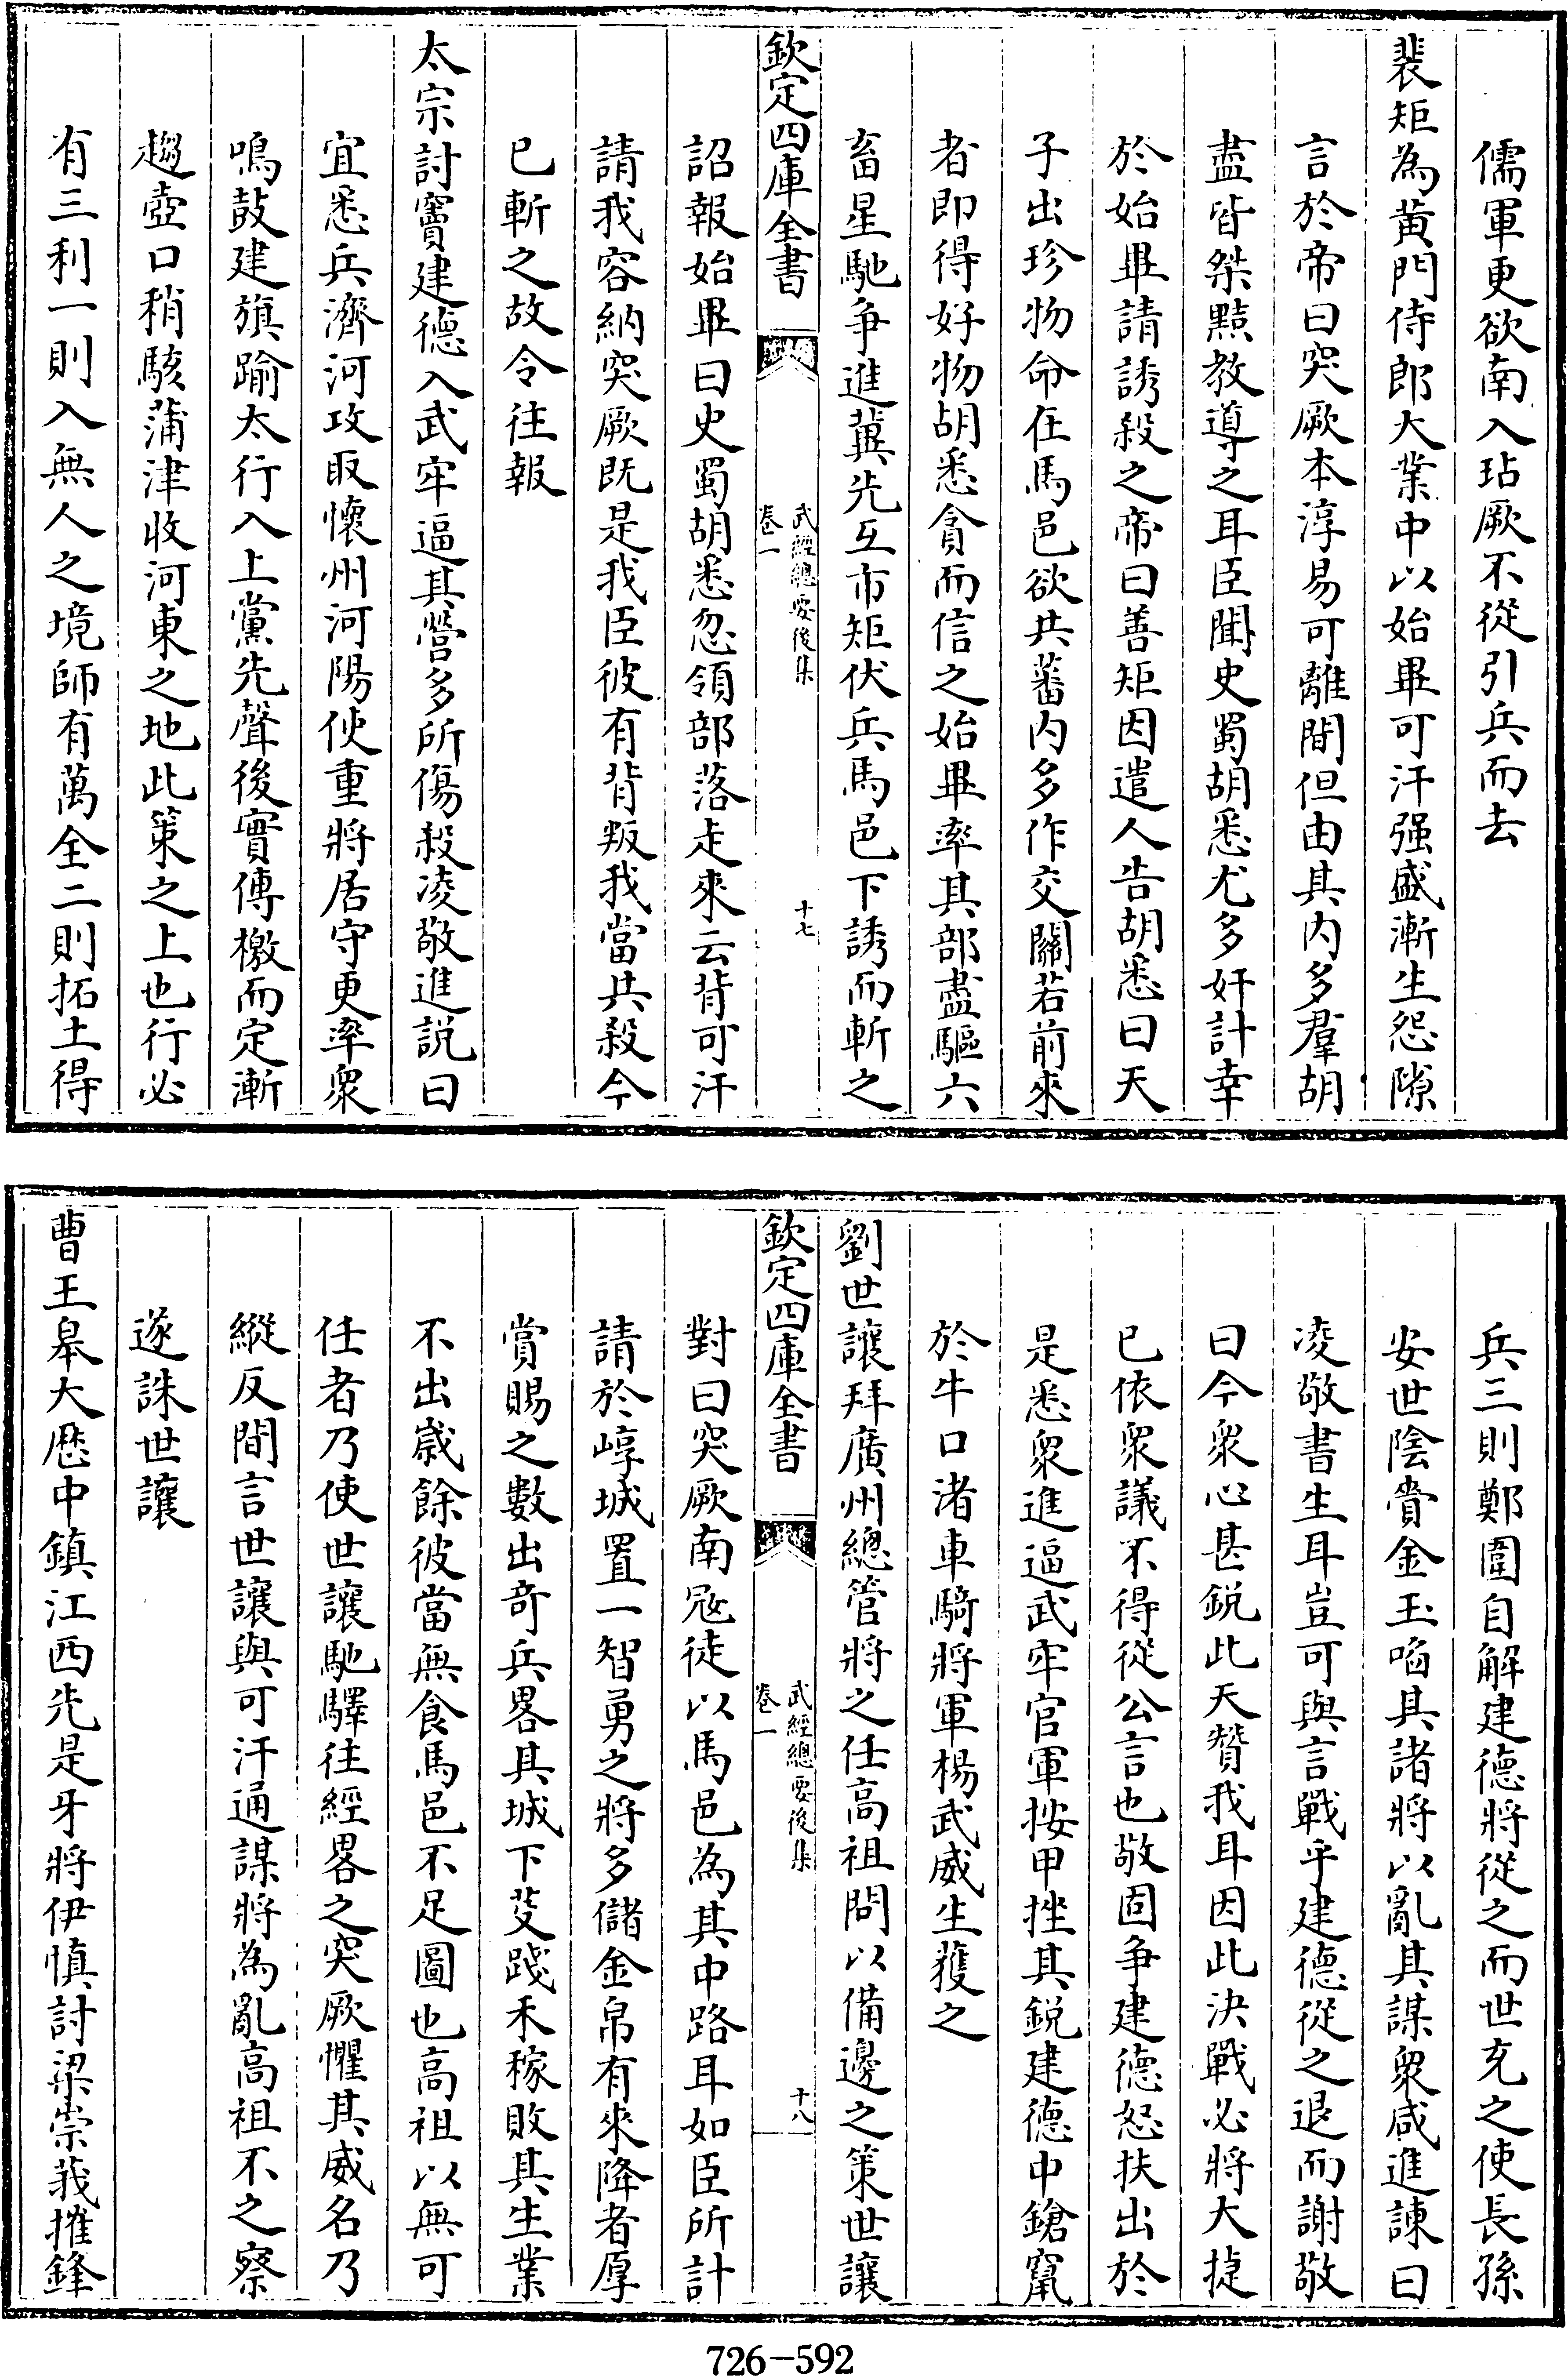 儒軍更欲南入玷厥不從引兵而去
裴矩為黄門侍郎大業中以始畢可汗强盛漸生怨隙
言於帝曰突厥本淳易可離間但由其内多羣胡
盡皆桀黠教導之耳臣聞史蜀胡悉尤多奸計幸
於始畢請誘殺之帝曰善矩因遣人告胡悉曰天
子出珍物命在馬邑欲共蕃内多作交關若前來
者即得好物胡悉貪而信之始畢率其部盡驅六
畜星馳争進冀先互市矩伏兵馬邑下誘而斬之
欽定四庫全書
武經總要後集
卷一
十七
詔報始畢曰史蜀胡悉忽領部落走來云背可汗
請我容納突厥既是我臣彼有背叛我當共殺今
已斬之故令往報
太宗討竇建德入武牢逼其營多所傷殺凌敬進説曰
宜悉兵濟河攻取懷州河陽使重將居守更率衆
鳴鼓建旗踰太行入上黨先聲後實傳檄而定漸
趨壺口稍駭蒲津收河東之地此策之上也行必
有三利一則入無人之境師有萬全二則拓土得
兵三則鄭圍自解建德將從之而世充之使長孫
安世陰賫金玉啗其諸將以亂其謀衆咸進諫曰
凌敬書生耳豈可與言戰乎建德從之退而謝敬
曰今衆心甚鋭此天贊我耳因此決戰必將大捷
已依衆議不得從公言也敬固争建德怒扶出於
是悉衆進逼武牢官軍按甲挫其鋭建德中鎗竄
於牛口渚車騎將軍楊武威生獲之
劉世讓拜廣州總管將之任高祖問以備邊之策世讓
欽定四庫全書
武經總要後集
卷一
十八
對曰突厥南寇徒以馬邑為其中路耳如臣所計
請於崞城置一智勇之將多儲金帛有來降者厚
賞賜之數出奇兵畧其城下芟踐禾稼敗其生業
不出嵗餘彼當無食馬邑不足圖也高祖以無可
任者乃使世讓馳驛往經畧之突厥懼其威名乃
縱反間言世讓與可汗通謀將為亂高祖不之察
遂誅世讓
曹王皋大歴中鎮江西先是牙將伊慎討梁崇義摧鋒
726-592